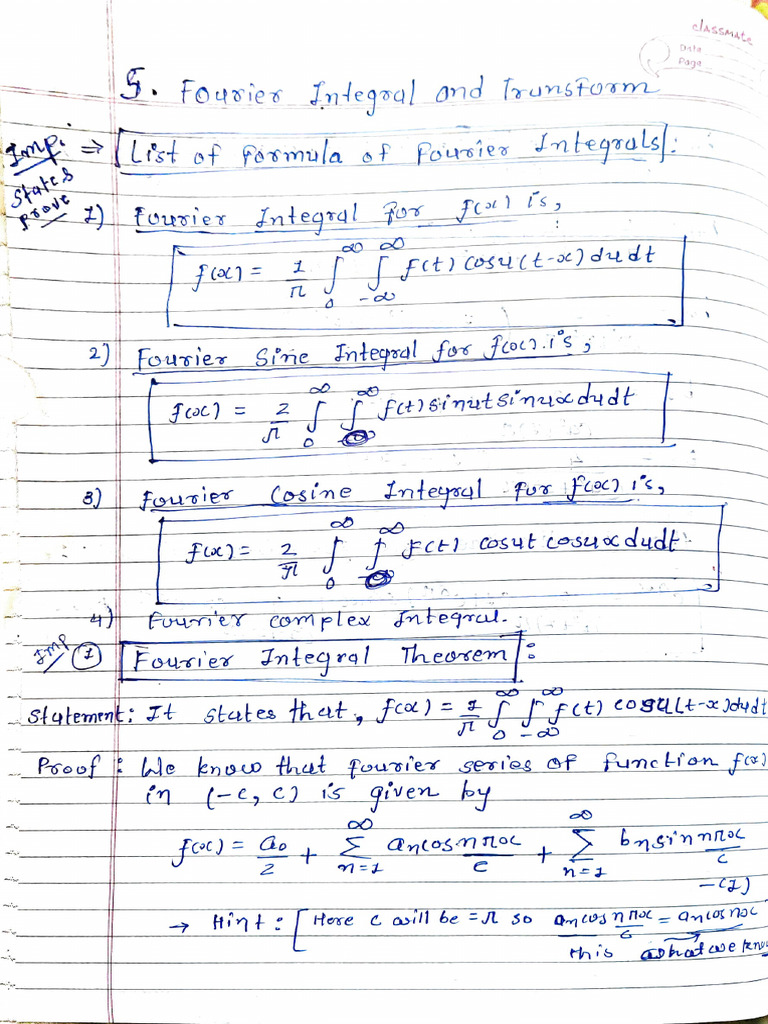 classmate
Date
Page
5. Fourier Integral and Transform
Imp. ⇒ List of formula of Fourier Integrals :
States
Prove
1) Fourier Integral For f(x) is,
f(x) = 1/π ∫₀^∞ ∫₋∞^∞ f(t) cosu(t-x) du dt
2) Fourier Sine Integral for f(x) is,
f(x) = 2/π ∫₀^∞ ∫^∞ f(t) sinut sinux du dt
3) Fourier Cosine Integral for f(x) is,
f(x) = 2/π ∫₀^∞ ∫^∞ f(t) cosut cosux du dt
4) Fourier complex Integral.
Imp ① Fourier Integral Theorem :
Statement: It states that, f(x) = 1/π ∫₀^∞ ∫₋∞^∞ f(t) cosu(t-x) du dt
Proof : We know that fourier series of function f(x)
in (-c, c) is given by
f(x) = a₀/2 + ∑_{n=1}^∞ an cos nπx/c + ∑_{n=1}^∞ bn sin nπx/c
—(1)
→ Hint : [ Here c will be = π so an cos nπx/c = an cos nx
this what we know